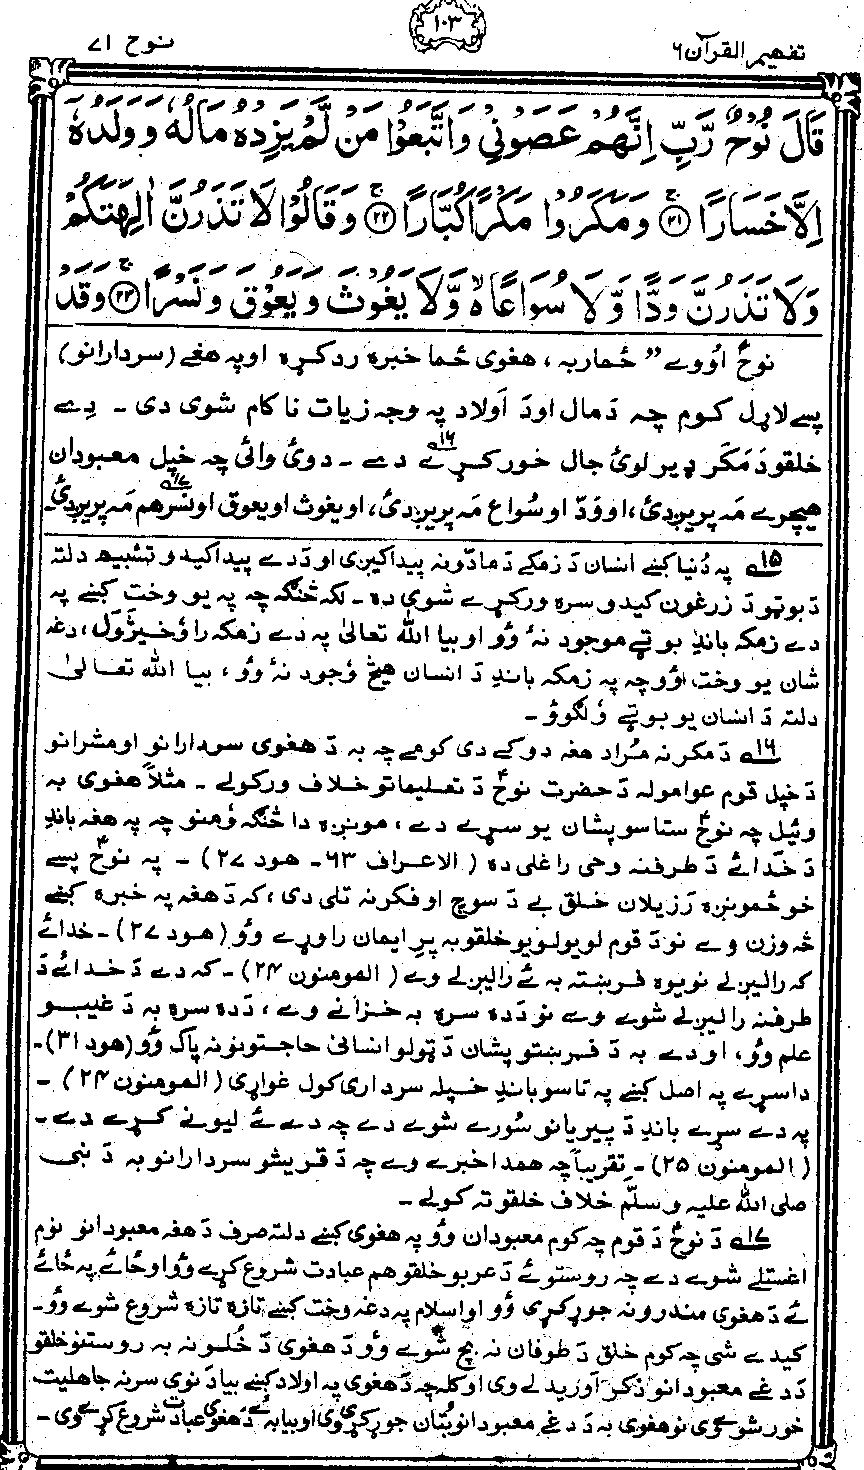 تفهیم القرآن ۶
۱۰۳
نوح ۷۱
قَالَ نُوحٌ رَّبِّ اِنَّهُمْ عَصَوْنِيْ وَاتَّبَعُوْا مَنْ لَّمْ يَزِدْهُ مَالُهٗ وَوَلَدُهٗٓ
اِلَّا خَسَارًا ﴿۲۱﴾ وَمَكَرُوْا مَكْرًا كُبَّارًا ﴿۲۲﴾ وَقَالُوْا لَا تَذَرُنَّ اٰلِهَتَكُمْ
وَلَا تَذَرُنَّ وَدًّا وَّلَا سُوَاعًا ۙ وَّلَا يَغُوْثَ وَيَعُوْقَ وَنَسْرًا ﴿۲۳﴾ وَقَدْ
نوحؑ اوُوے ” ځما ربه، هغوی ځما خبره رد کړه او په هغے (سردارانو)
پسے لاړل کوم چه دَ مال او دَ اَولاد په وجه زیات ناکام شوی دی ۔ دِے
خلقو دَ مَکر ډیر لوئ جال خور کړے ۱۶ دے ۔ دوئ وائی چه خپل معبودان
هیچرے مَه پریږدئ، او وَدّ او سُواع مَه پریږدئ، او یغوث او یعوق او نَسر ۱۷ هم مَه پریږدئ۔
۱۵ په دُنیا کښے انسان دَ زمکے دَ مادّو نه پیدا کیږی او دَ دے پیدا کیدو تشبیه دلته
دَ بوټو دَ زرغون کیدو سره ورکړے شوی ده ۔ لکه څنګه چه په یو وخت کښے په
دے زمکه باندِ بوټے موجود نۀ وُو او بیا الله تعالیٰ په دے زمکه را وُخیژول، دغه
شان یو وخت اوُو چه په زمکه باندِ دَ انسان هیڅ وُجود نۀ وُو، بیا الله تعالیٰ
دلته دَ انسان یو بوټے وُ لګوؤ ۔
۱۶ دَ مکر نه مُراد هغه دوکے دی کومے چه به دَ هغوی سردارانو او مشرانو
دَ خپل قوم عوامو له دَ حضرت نوحؑ دَ تعلیماتو خلاف ورکولے ۔ مثلاً هغوی به
وئیل چه نوحؑ ستاسو پشان یو سړے دے، مونږه دا څنګه وُمنو چه په هغه باندِ
دَ خدائے دَ طرفنه وحی راغلی ده (الاعراف ۶۳- هود ۲۷) ۔ په نوحؑ پسے
خو ځمونږه رَزیلان خلق بے دَ سوچ او فکر نه تلی دی، که دَ هغه په خبره کښے
څه وزن وے نو دَ قوم لویو لویو خلقو به پرِ ایمان راوړے وُو (هود ۲۷) ۔ خدائے
که رالیږلے نو یوه فرښته به ئے رالیږلے وے (المومنون ۲۴) ۔ که دے دَ خدائے دَ
طرفنه رالیږلے شوے وے نو دَ ده سره به خزانے وے، دَ ده سره به دَ غیبو
علم وُو، او دے به دَ فرښتو پشان دَ ټولو انسانی حاجتونو نه پاک وُو (هود ۳۱)۔
دا سړے په اصل کښے په تاسو باندِ خپله سرداری کول غواړی (المومنون ۲۴) ۔
په دے سړے باندِ دَ پیریانو سُورے شوے دے چه دے ئے لیونے کړے دے ۔
(المومنون ۲۵) ۔ تقریباً چه همدا خبرے وے چه دَ قریشو سردارانو به دَ نبی
صلی الله علیه وسلّم خلاف خلقو ته کولے ۔
۱۷ دَ نوحؑ دَ قوم چه کوم معبودان وُو په هغوی کښے دلته صرف دَ هغه معبودانو نوم
اغستلے شوے دے چه روستو ئے دَ عربو خلقو هم عبادت شروع کړے وُو او ځائے په ځائے
ئے دَ هغوی مندرونه جوړ کړی وُو او اسلام په دغه وخت کښے تازه تازه شروع شوے وُو۔
کیدے شی چه کوم خلق دَ طوفان نه بچ شوے وُو دَ هغوی دَ خُلو نه به روستنو خلقو
دَ دغے معبودانو ذکر اَوریدلے وی او کله چه دَ هغوی په اولاد کښے بیا دَ نوی سر نه جاهلیت
خور شوے وی نو هغوی به دَ دغے معبودانو بُتان جوړ کړی وی او بیا به ئے دَ هغوی عبادت شروع کړے وی ۔